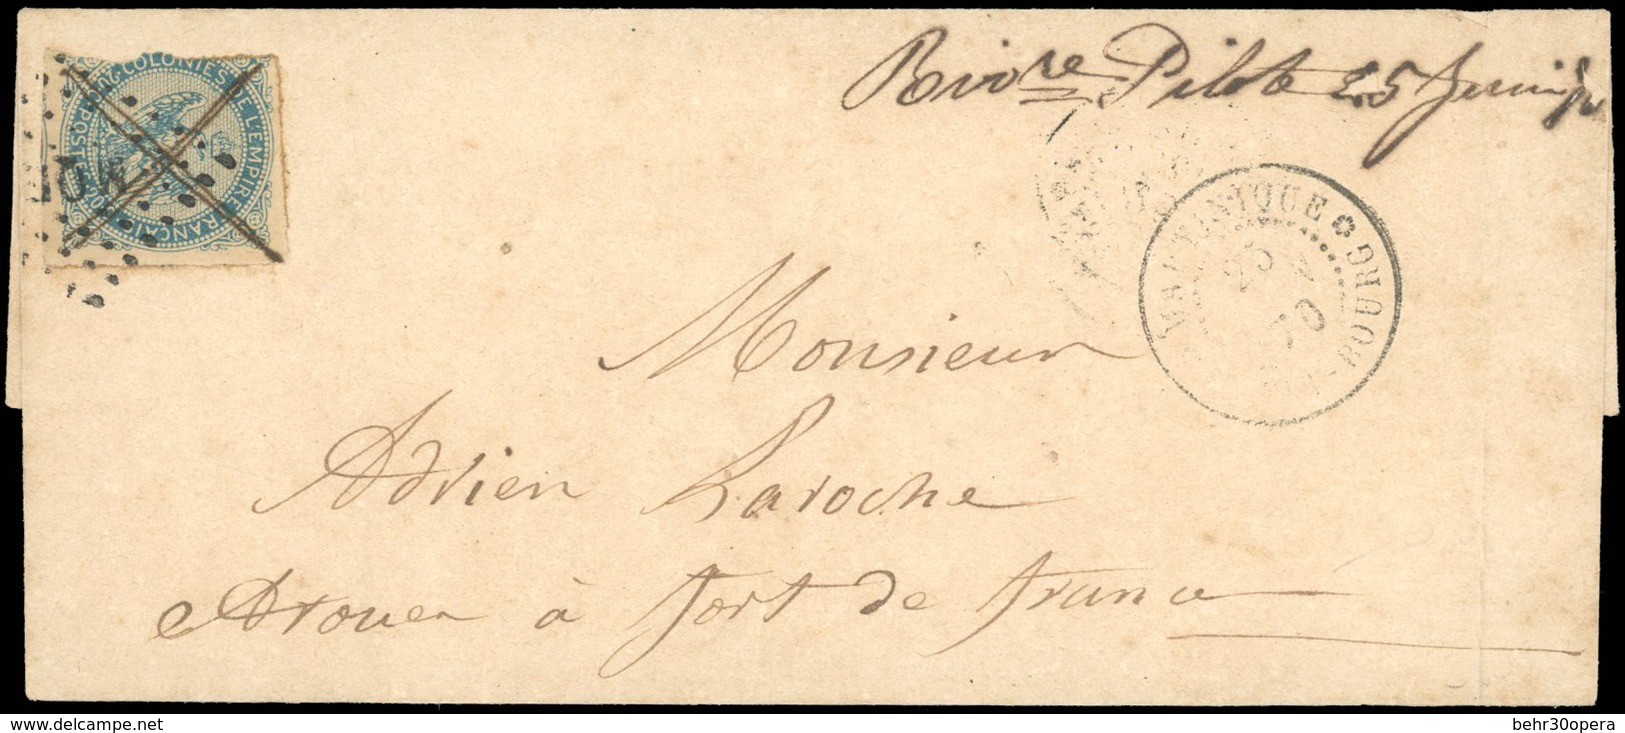 Rivre Pilote 25 Juin
COLONIES DE L'EMPIRE FRANÇAIS
POSTES
MARTINIQUE
BOURG
25
70
Monsieur
Adrien Laroche
Avoué à fort de france
www.delcampe.net
behr30opera